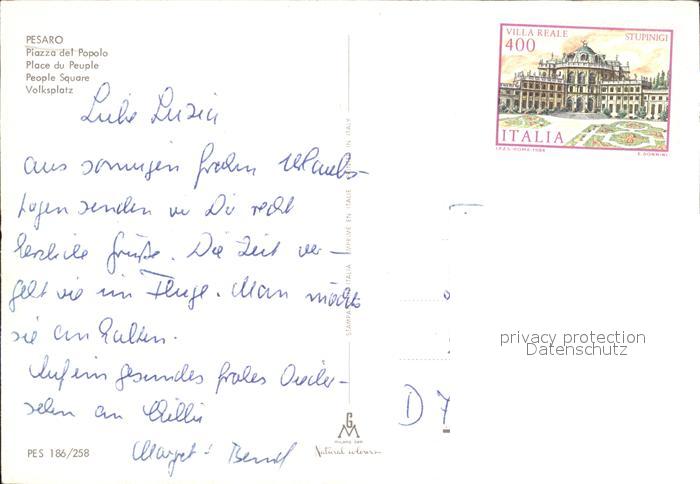 PESARO
Piazza del Popolo
Place du Peuple
People Square
Volksplatz
Liebe Luzia
aus sonnigen frohen Urlaubs-
tagen senden wir Dir recht
herzliche Grüße. Die Zeit ver-
geht wie im Fluge. Man möchte
sie anhalten.
Auf ein gesundes frohes Wieder-
sehen an
Margret + Bernd
PES 186/258
IMPRIME EN ITALIE
MILANO
Natural colours
VILLA REALE
STUPINIGI
400
ITALIA
I.P.Z.S.-ROMA-1986
E. DONNINI
privacy protection
Datenschutz
D 7